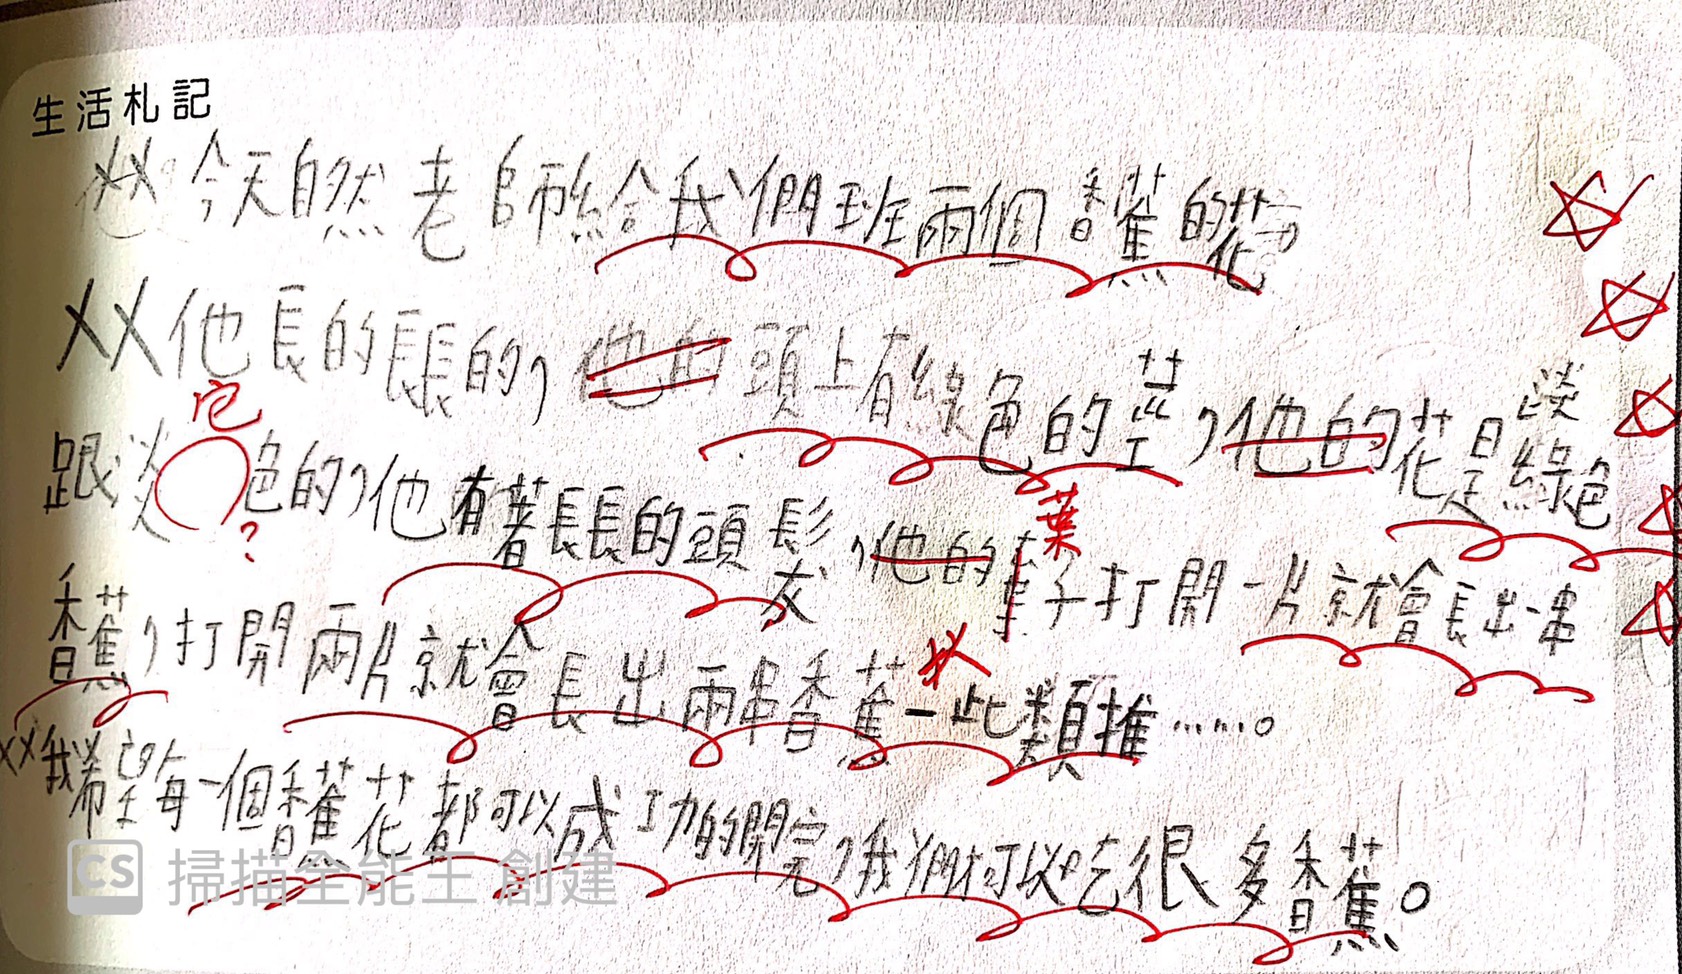 生活札記
今天自然老師給我們班兩個香蕉的花,
他長的長長的,他的頭上有綠色的莖,他的花是淡綠色
跟淡色的,他有著長長的頭髮,他的葉子打開一片就會長出一串
香蕉,打開兩片就會長出兩串香蕉一此類推……。
我希望每一個香蕉花都可以成功的開完,我們才可以吃很多香蕉。
CS 掃描全能王 創建